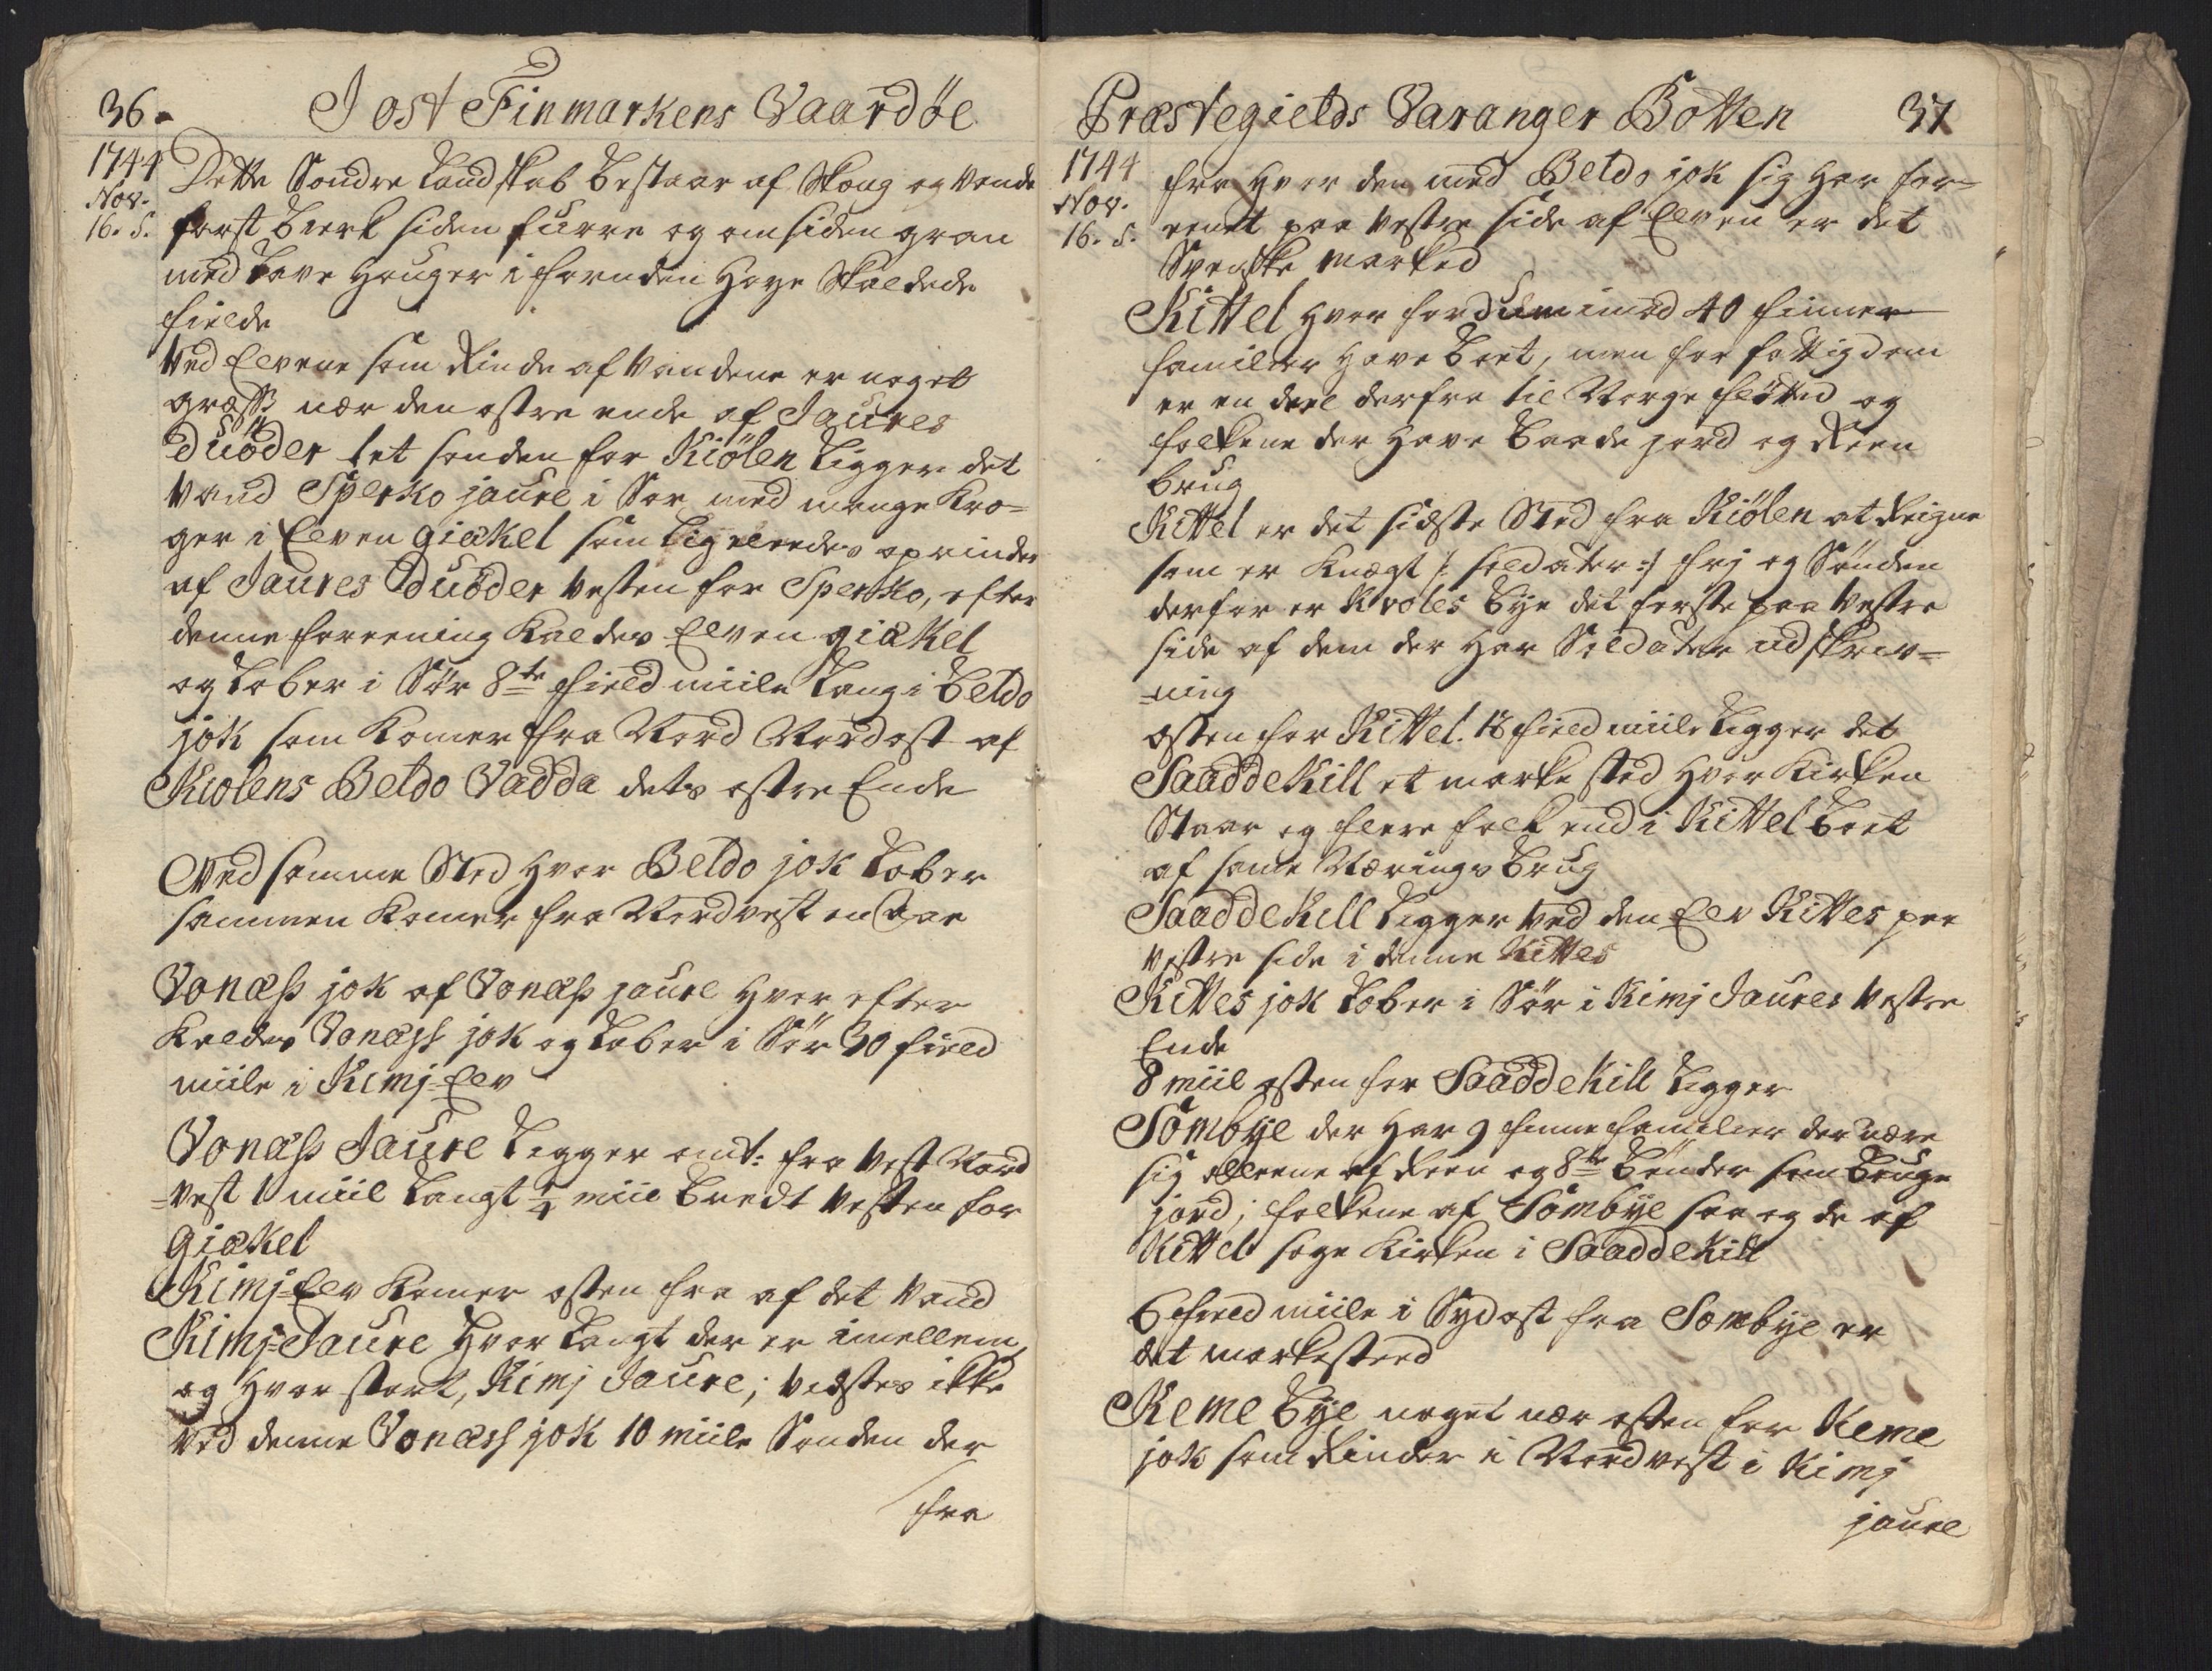 36.
I ost Finmarkens Vaardöe
1744
Nov.
16. S.
Dette Söndre Landskab bestaar af Skoug og Vande
först Berk siden furre og omsiden gran
med Lave Houger iforuden Höye Skaldede
fielde
Ved Elvene som Rinde af Vandene er noget
græss, nær den östre ende af Jaures
Duöder let sönden for Kiölen Ligger det
Vand Sperko jaure i Sör med mange Kro=
ger i Elven Giækel som Ligeleedes oprinder
af Jaures Duöder Vesten for Sperko, efter
denne foreening Kaldes Elven giækel
og Löber i Sör 8te field miile Lang i Beldo
jok som Komer fra Nord Nordost af
Kiölens Beldo Vadda dets östre Ende
Ved samme Sted hvor Beldo jok Löber
sammen Komer fra Nordvest en Aae
Vonæss jok af Vonæss jaure hvor efter
Kaldes Vonæss jok og Löber i Sör 30 field
miile i Kimj=Elv
Vonæss Jaure Ligger omt: fra Vest Nord
=vest 1 miil Langt 1/4 miil Bredt Vesten for
Giækel
Kimj=Elv Komer östen fra af det Vand
Kimj=Jaure hvor Langt der er imellem,
og hvor stort, Kimj Jaure; vidstes ikke
Ved denne Vonæss jok 10 miile Sönden der
fra
Præstegields Varanger Botten
37
1744
Nov.
16. S.
fra hvor den med Beldo jok sig har for=
eenet paa Vestre side af Elven er det
Svenske marked
Kittel hvor fordum imod 40 finner
familier have boet, men for fattigdom
er en deel derfra til Norge flötted og
folkene der have baade jord og Reen
brug
Kittel er det sidste Sted fra Kiölen at Reigne
som er Knægt /: soldater :/ frj og Sönden
derfor er Kvoles Bye det förste paa Vestre
side af dem der har Soldater udskriv=
=ning
östen for Kittel. 18 field miile Ligger det
Saaddekill et marke sted hvor Kirken
Staar og flere folk end i Kittel boet
af same Nærings Brug
Saaddekill Ligger ved den Elv Kittes paa
Vestre side i denne Kittes
Kittes jok Löber i Sör i Kimj Jaures Vestre
Ende
8 miil östen for Saaddekill Ligger
Sombye der har 9 finne familier der nære
sig alleene af Reen og 8te Bönder som Bruge
jord; folkene af Sombye saa og de af
Kittel söge Kirken i Saaddekill
6 field miile i Sydost fra Sombye er
det markested
Keme Bye noget nær östen for Keme
jok som Rinder i Nordvest i Kimj
jaure